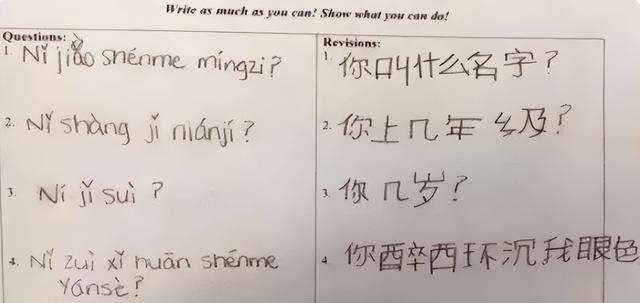 Write as much as you can! Show what you can do!
Questions:
1. Nǐ jiào shénme míngzi?
2. Nǐ shàng jǐ niánjí?
3. Ní jǐ suì?
4. Nǐ zuì xǐ huān shénme
yánsè?
Revisions:
1. 你叫什么名字?
2. 你上几年级?
3. 你几岁?
4 你酉卒西环沉我眼色